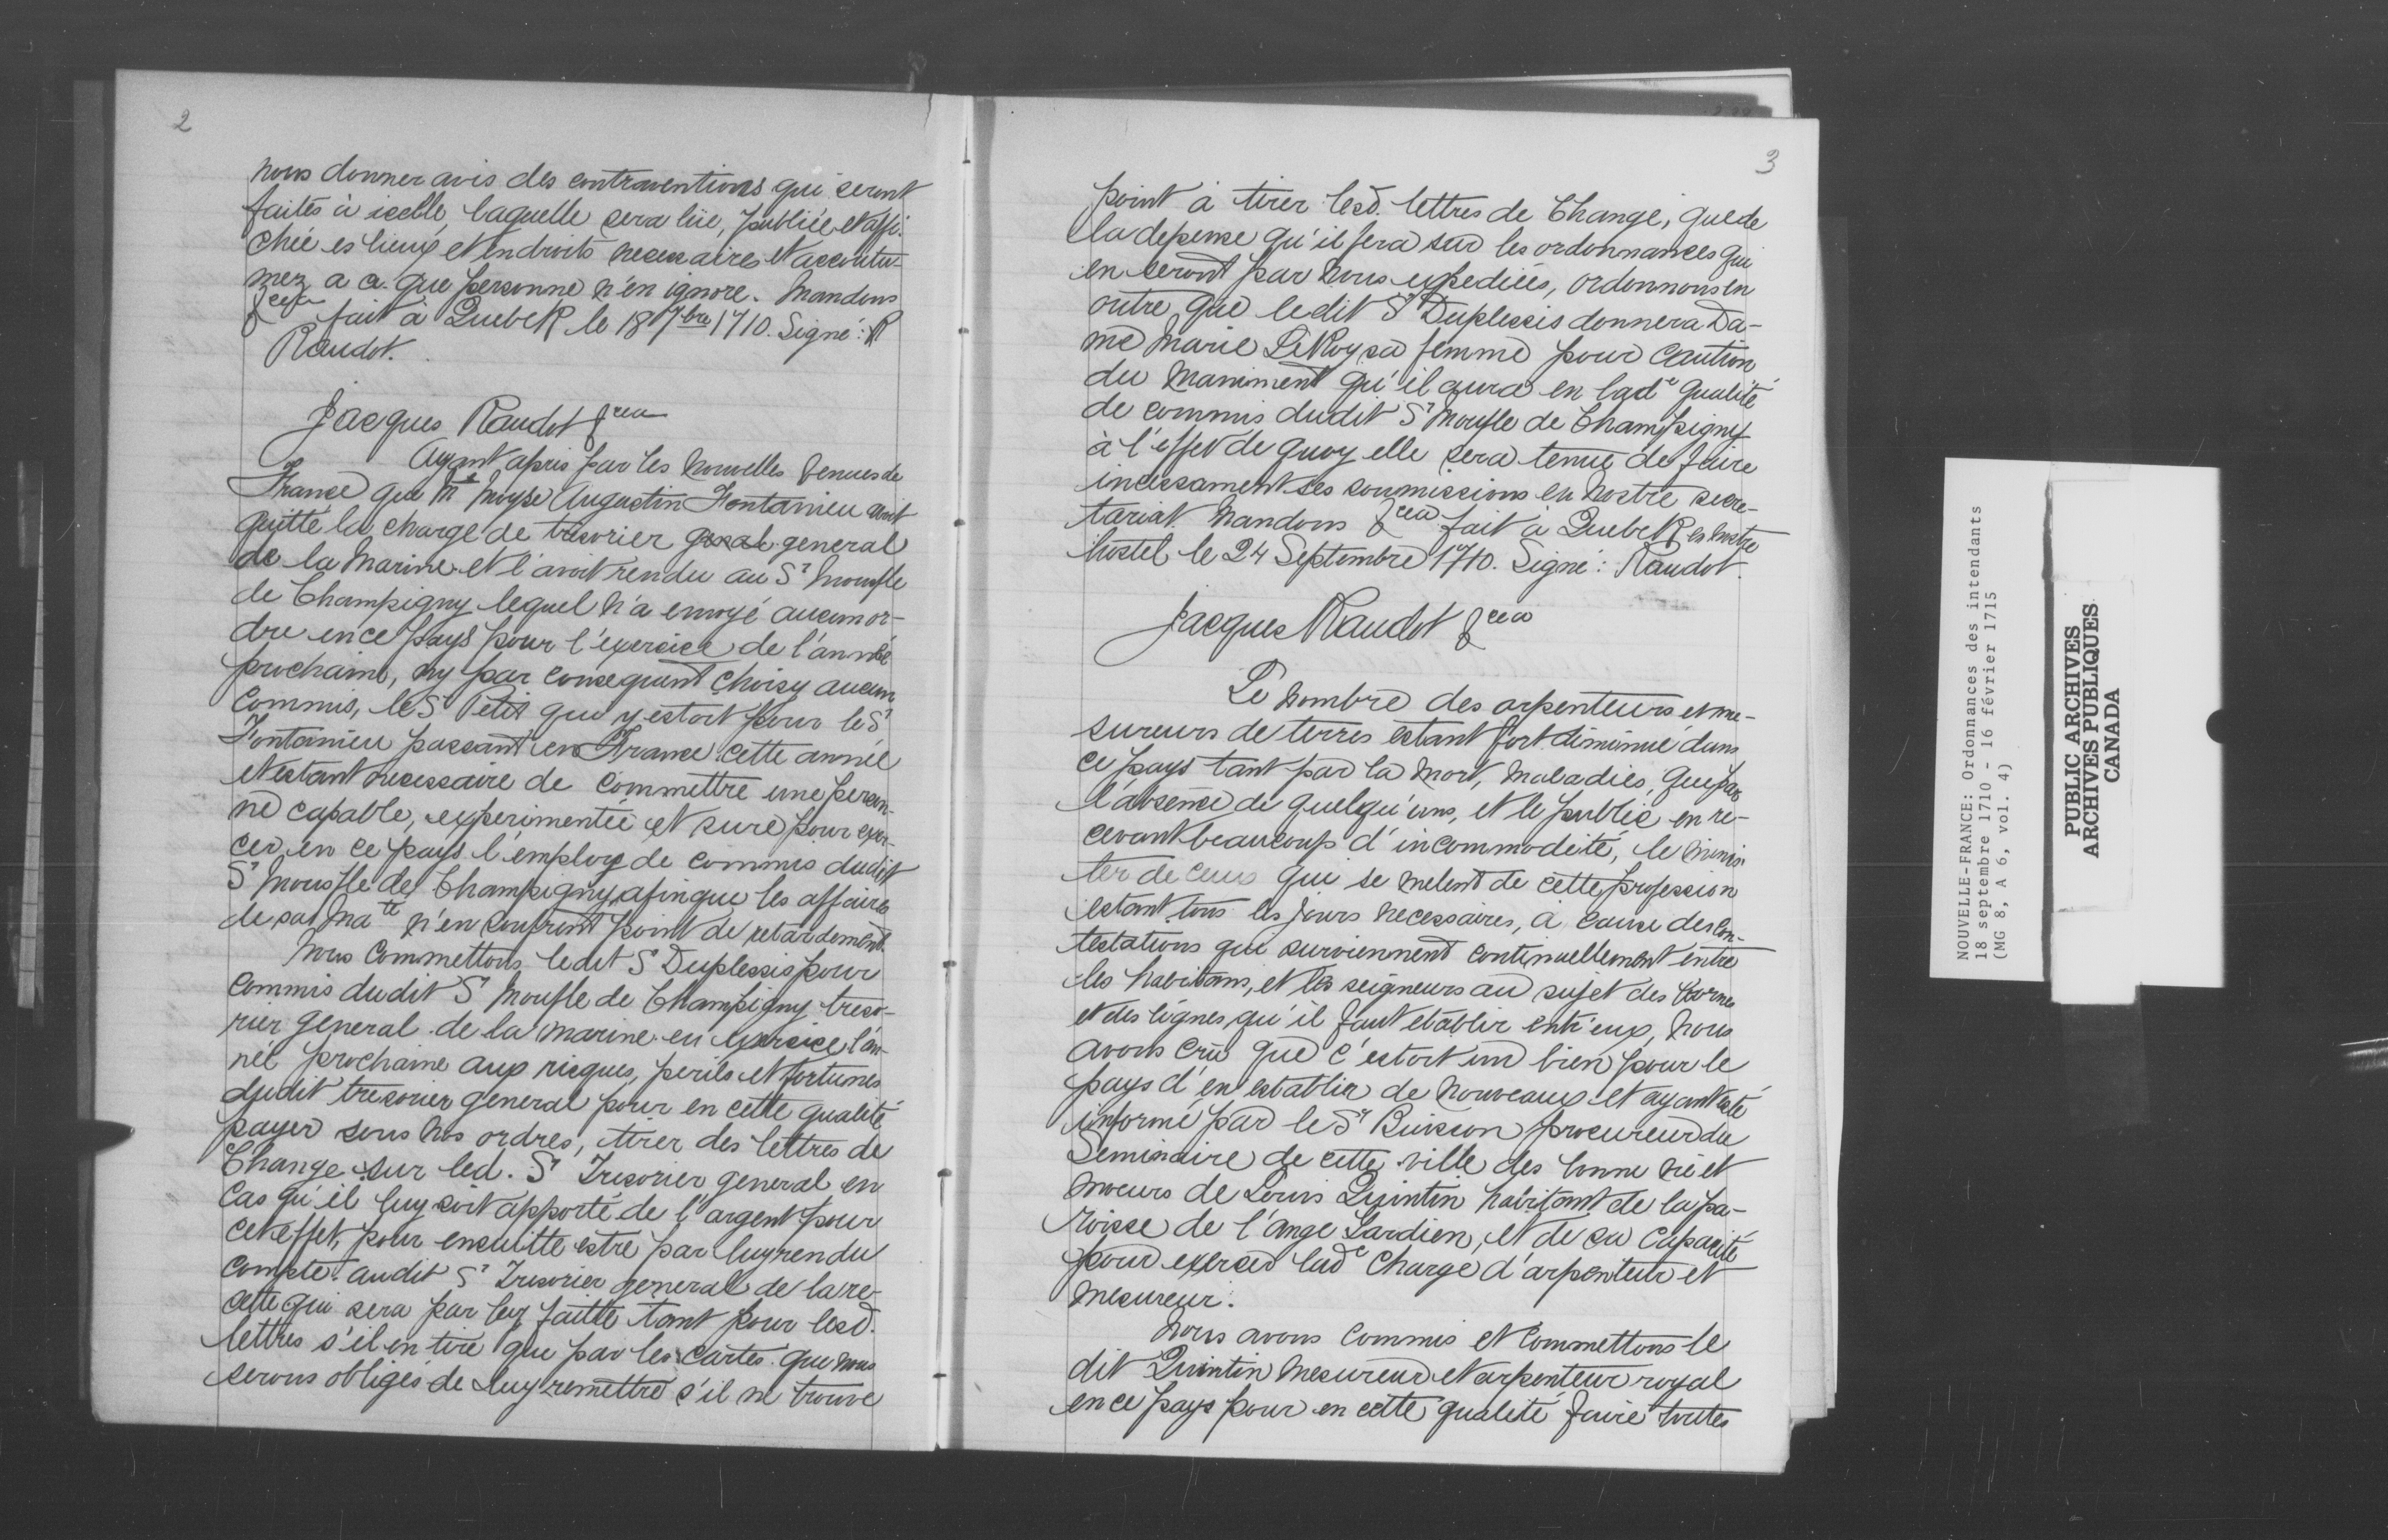 2
nous donner avis des contraventions qui seront
faites à icelle laquelle sera lüe, publiée et affi-
chée es lieux et endroits necessaires et accoutu-
mez a ce que personne n'en ignore. Mandons
&cea fait à Quebek le 18 7bre 1710. Signé: R
Raudot.
Jacques Raudot &cea
Ayant apris par les nouvelles venues de
France que Me Moyse Augustin Fontanieu avoit
quitté la charge de tresorier general
de la Marine et l'avoit rendu au Sr Moufle
de Champigny lequel n'a envoyé aucun or-
dre en ce pays pour l'exercice de l'année
prochaine, ny par consequent choisy aucun
commis, le Sr Petit qui y estoit pour le Sr
Fontanieu passant en France cette année
et estant necessaire de commettre une person-
ne capable, experimentée et sure pour exer-
cer en ce pays l'employ de commis dudit
Sr Moufle de Champigny, afin que les affaires
de sa Mate n'en soufrent point de retardement.
Nous commettons ledit Sr Duplessis pour
commis dudit Sr Moufle de Champigny treso-
rier general de la marine en exercice l'an-
née prochaine aux risques, perils et fortunes
dudit tresorier general pour en cette qualité
payer sous nos ordres, tirer des lettres de
Change sur led. Sr Tresorier general en
cas qu'il luy soit apporté de l'argent pour
cet effet, pour ensuitte estre par luy rendu
compte audit Sr Tresorier general de la re-
cette qui sera par luy faitte tant pour lesd.
lettres s'il en tire que par les cartes que nous
serons obligés de luy remettre s'il ne trouve
3
point à tirer lesd. lettres de Change, que de
la depense qu'il fera sur les ordonnances qui
en seront par nous expediées, ordonnons en
outre que ledit Sr Duplessis donnera Da-
me Marie LeRoy sa femme pour caution
du maniment qu'il aura en lade qualité
de commis dudit Sr Moufle de Champigny
à l'effet de quoy elle sera tenue de faire
incessament ses soumissions en nostre secre-
tariat. Mandons &cea fait à Quebek en nostre
hostel le 24 Septembre 1710. Signé: Raudot.
Jacques Raudot &cea
Le nombre des arpenteurs et me-
sureurs de terres estant fort diminué dans
ce pays tant par la mort, maladies, que par
l'absence de quelqu'uns, et le public en re-
cevant beaucoup d'incommodité, le minis-
ter de ceux qui se melent de cette profession
estant tous les jours necessaires, à cause des con-
testations qui surviennent continuellement entre
les habitans, et les seigneurs au sujet des bornes
et des lignes qu'il faut etablir entr'eux, nous
avons crû que c'estoit un bien pour le
pays d'en establir de nouveaux et ayant esté
informé par le Sr Buisson procureur du
Seminaire de cette ville des bonne vie et
moeurs de Louis Quintin habitant de la pa-
roisse de l'ange Gardien, et de sa capacité
pour exercer lade Charge d'arpenteur et
mesureur.
Nous avons commis et commettons le
dit Quintin mesureur et arpenteur royal
en ce pays pour en cette qualité faire toutes
NOUVELLE-FRANCE: Ordonnances des intendants
18 septembre 1710 - 16 février 1715
(MG 8, A 6, vol. 4)
PUBLIC ARCHIVES
ARCHIVES PUBLIQUES
CANADA